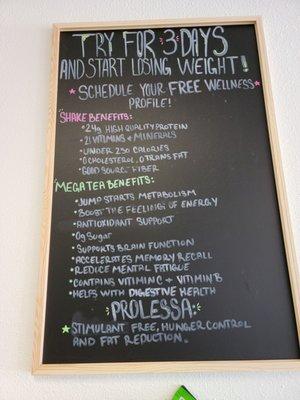 TRY FOR 3 DAYS
AND START LOSING WEIGHT!
* SCHEDULE YOUR FREE WELLNESS *
PROFILE!
SHAKE BENEFITS:
• 24g HIGH QUALITY PROTEIN
• 21 VITAMINS + MINERALS
• UNDER 250 CALORIES
• 0 CHOLESTEROL, 0 TRANS FAT
• GOOD SOURCE FIBER
MEGA TEA BENEFITS:
• JUMP STARTS METABOLISM
• BOOST THE FEELINGS OF ENERGY
• ANTIOXIDANT SUPPORT
• 0g SUGAR
• SUPPORTS BRAIN FUNCTION
• ACCELERATES MEMORY RECALL
• REDUCE MENTAL FATIGUE
• CONTAINS VITAMIN C + VITAMIN B
• HELPS WITH DIGESTIVE HEALTH
PROLESSA:
★ STIMULANT FREE, HUNGER CONTROL
AND FAT REDUCTION.